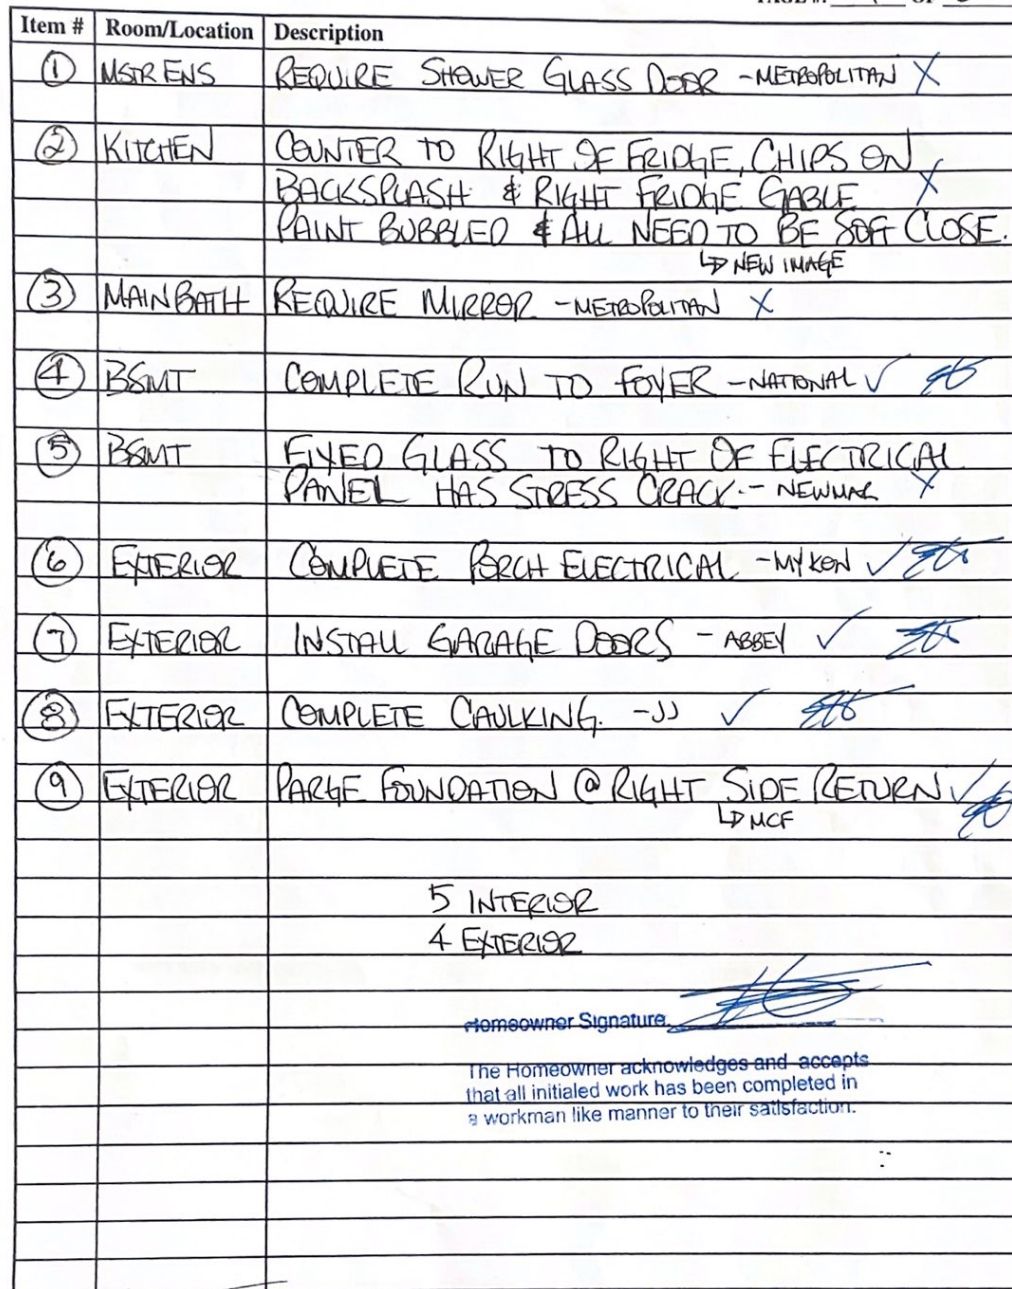 Item # Room/Location Description
1 MSTR ENS REQUIRE SHOWER GLASS DOOR - METROPOLITAN X
2 KITCHEN COUNTER TO RIGHT OF FRIDGE, CHIPS ON
BACKSPLASH & RIGHT FRIDGE GABLE X
PAINT BUBBLED & ALL NEED TO BE SOFT CLOSE.
↳ NEW IMAGE
3 MAIN BATH REQUIRE MIRROR - METROPOLITAN X
4 BSMT COMPLETE RUN TO FOYER - NATIONAL ✓
5 BSMT FIXED GLASS TO RIGHT OF ELECTRICAL
PANEL HAS STRESS CRACK. - NEWMAR X
6 EXTERIOR COMPLETE PORCH ELECTRICAL - MYKON ✓
7 EXTERIOR INSTALL GARAGE DOORS - ABBEY ✓
8 EXTERIOR COMPLETE CAULKING. - JJ ✓
9 EXTERIOR PARGE FOUNDATION @ RIGHT SIDE RETURN ✓
↳ MCF
5 INTERIOR
4 EXTERIOR
Homeowner Signature
The Homeowner acknowledges and accepts
that all initialed work has been completed in
a workman like manner to their satisfaction.